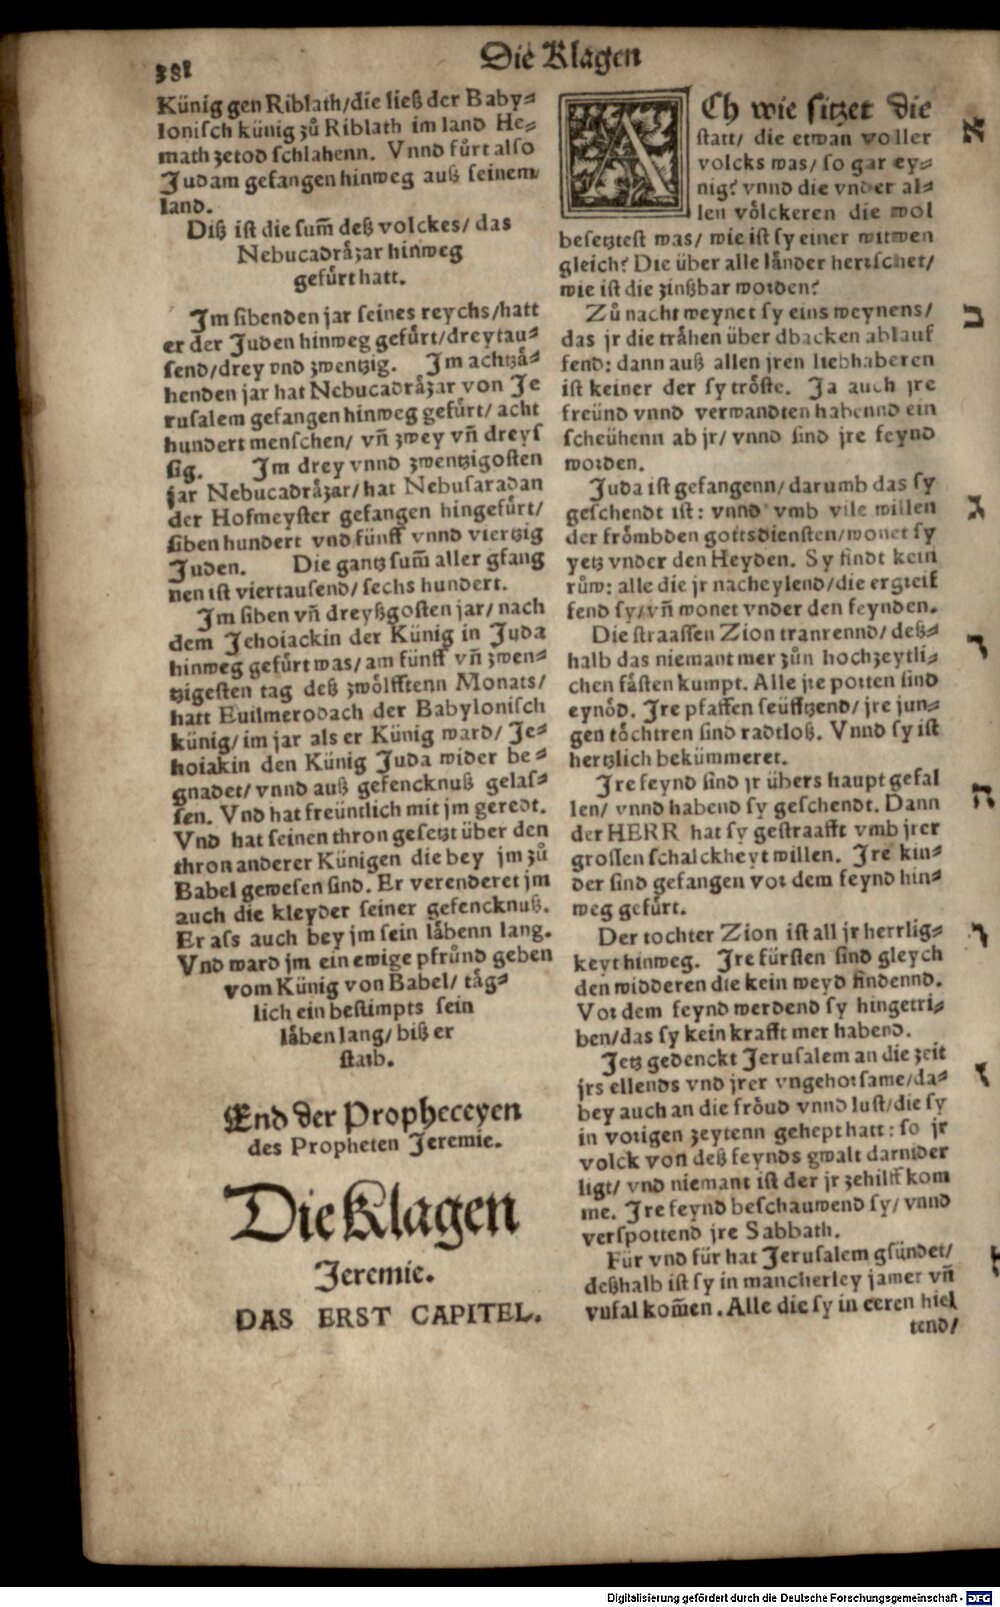 381
Die Klagen
Künig gen Riblath/die ließ der Baby⸗
lonisch künig zů Riblath im land He⸗
math zetod schlahenn. Vnnd fůrt also
Judam gefangen hinweg auß seinem
land.
Diß ist die sum̃ deß volckes/ das
Nebucadråzar hinweg
gefůrt hatt.
Jm sibenden jar seines reychs/hatt
er der Juden hinweg gefůrt/dreytau⸗
send/drey vnd zwentzig. Jm achtzå⸗
henden jar hat Nebucadråzar von Je
rusalem gefangen hinweg gefůrt/ acht
hundert menschen/ vñ zwey vñ dreys
sig. Jm drey vnnd zwentzigosten
jar Nebucadråzar/hat Nebusaradan
der Hofmeyster gefangen hingefůrt/
siben hundert vnd fünff vnnd viertzig
Juden. Die gantz sum̃ aller gfang
nen ist viertausend/sechs hundert.
Jm siben vñ dreyßgosten jar/ nach
dem Jehoiackin der Künig in Juda
hinweg gefůrt was/am fünff vñ zwen⸗
tzigesten tag deß zwölfftenn Monats/
hatt Euilmerodach der Babylonisch
künig/im jar als er Künig ward/ Je⸗
hoiakin den Künig Juda wider be⸗
gnadet/ vnnd auß gefencknuß gelas⸗
sen. Vnd hat freüntlich mit jm geredt.
Vnd hat seinen thron gesetzt über den
thron anderer Künigen die bey jm zů
Babel gewesen sind. Er verenderet jm
auch die kleyder seiner gefencknuß.
Er ass auch bey jm sein låbenn lang.
Vnd ward jm ein ewige pfrůnd geben
vom Künig von Babel/ tåg⸗
lich ein bestimpts sein
låben lang/ biß er
starb.
End der Propheceyen
des Propheten Jeremie.
Die Klagen
Jeremie.
DAS ERST CAPITEL.
ACh wie sitzet die
statt/ die etwan voller
volcks was/ so gar ey⸗
nig? vnnd die vnder al⸗
len völckeren die wol
besetztest was/ wie ist sy einer witwen
gleich? Die über alle lånder herrschet/
wie ist die zinßbar worden?
Zů nacht weynet sy eins weynens/
das jr die tråhen über dbacken ablauf
fend: dann auß allen jren liebhaberen
ist keiner der sy tröste. Ja auch jre
freünd vnnd verwandten habennd ein
scheühenn ab jr/ vnnd sind jre feynd
worden.
Juda ist gefangenn/darumb das sy
geschendt ist: vnnd vmb vile willen
der frömbden gottsdiensten/wonet sy
yetz vnder den Heyden. Sy findt kein
růw: alle die jr nacheylend/die ergreif
fend sy/vñ wonet vnder den feynden.
Die straassen Zion traurennd/ deß⸗
halb das niemant mer zůn hochzeytli⸗
chen fåsten kumpt. Alle jre porten sind
eynöd. Jre pfaffen seüfftzend/ jre jun⸗
gen töchtren sind radtloß. Vnnd sy ist
hertzlich bekümmeret.
Jre feynd sind jr übers haupt gefal
len/ vnnd habend sy geschendt. Dann
der HERR hat sy gestraafft vmb jrer
grossen schalckheyt willen. Jre kin⸗
der sind gefangen vor dem feynd hin⸗
weg gefůrt.
Der tochter Zion ist all jr herrlig⸗
keyt hinweg. Jre fürsten sind gleych
den widderen die kein weyd findennd.
Vor dem feynd werdend sy hingetri⸗
ben/das sy kein krafft mer habend.
Jetz gedenckt Jerusalem an die zeit
jrs ellends vnd jrer vngehorsame/da⸗
bey auch an die fröud vnnd lust/die sy
in vorigen zeytenn gehept hatt: so jr
volck von deß feynds gwalt darnider
ligt/ vnd niemant ist der jr zehilff kom
me. Jre feynd beschauwend sy/ vnnd
verspottend jre Sabbath.
Für vnd für hat Jerusalem gsündet/
deßhalb ist sy in mancherley jamer vñ
vnfal kom̃en. Alle die sy in eeren hiel
tend/
א
ב
ג
ד
ה
ו
ז
Digitalisierung gefördert durch die Deutsche Forschungsgemeinschaft - DFG